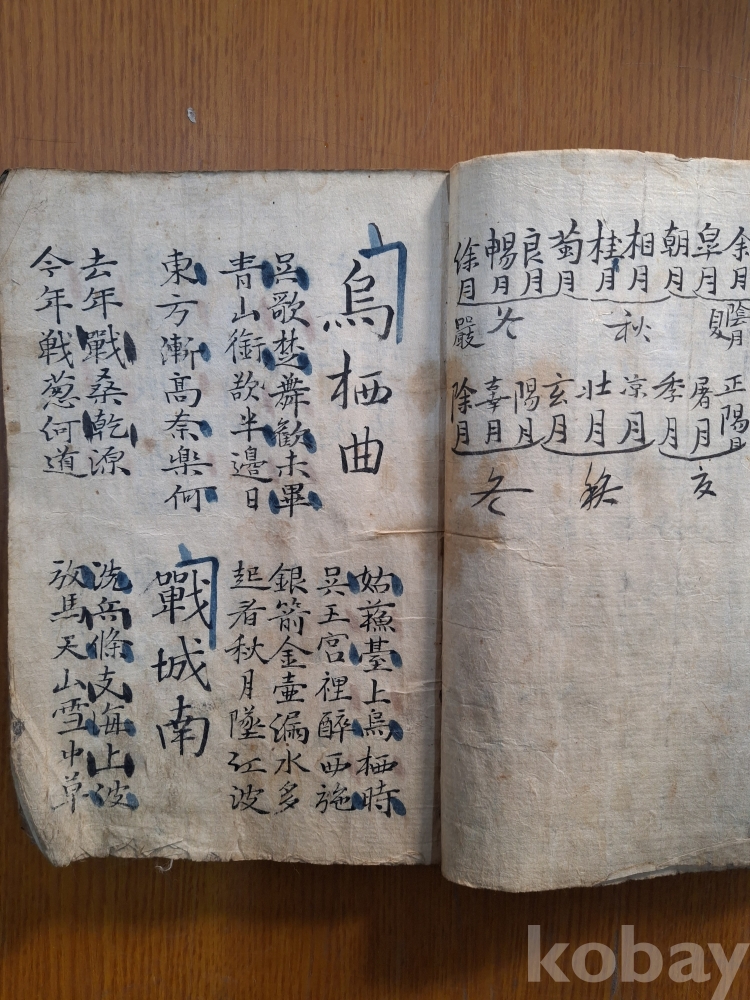 余月
皐月
朝月
相月
桂月
菊月
良月
暢月
徐月
陰月
夏
秋
冬
嚴
正陽月
暑月
季月
涼月
壯月
玄月
陽月
辜月
除月
夏
秋
冬
烏栖曲
姑蘓臺上烏栖時
吳王宮裡醉西施
吳歌楚舞歡未畢
青山銜欲半邊日
銀箭金壺漏水多
起看秋月墜江波
東方漸高奈樂何
戰城南
去年戰桑乾源
今年戰葱何道
洗兵條支海上波
放馬天山雪中草
kobay